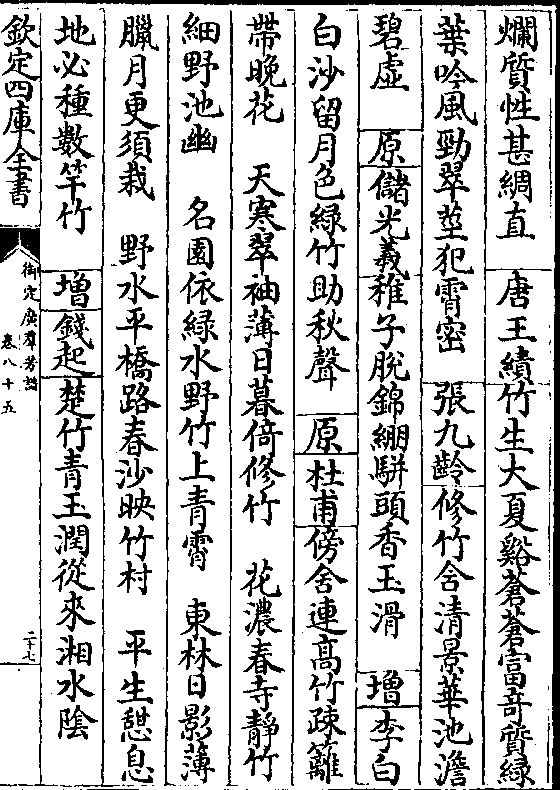 爛質性甚綢直　唐王績竹生大夏谿蒼蒼富奇質緑
葉吟風勁翠莖犯霄密　張九齡修竹含清景華池澹
碧虛　原儲光羲稚子脫錦繃駢頭香玉滑　增李白
白沙留月色緑竹助秋聲　原杜甫傍舍連高竹疎籬
帶晚花　天寒翠袖薄日暮倚修竹　花濃春寺靜竹
細野池幽　名園依緑水野竹上青霄　東林日影薄
臘月更須栽　野水平橋路春沙映竹村　平生憩息
地必種數竿竹　增錢起楚竹青玉潤從來湘水陰
欽定四庫全書
御定廣羣芳譜
卷八十五
二十七